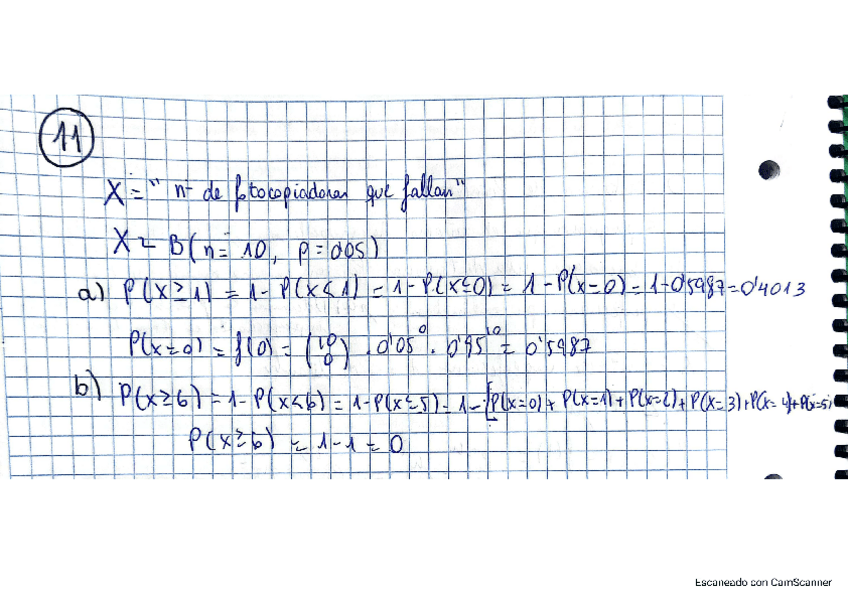 11
X = "nº de fotocopiadoras que fallan"
X ~ B(n = 10, p = 0'05)
a) P(X ≥ 1) = 1 - P(X < 1) = 1 - P(X ≤ 0) = 1 - P(X = 0) = 1 - 0'5987 = 0'4013
P(X = 0) = f(0) = (10 0) · 0'05⁰ · 0'95¹⁰ = 0'5987
b) P(X ≥ 6) = 1 - P(X < 6) = 1 - P(X ≤ 5) = 1 - [P(X = 0) + P(X = 1) + P(X = 2) + P(X = 3) + P(X = 4) + P(X = 5)
P(X ≥ 6) = 1 - 1 = 0
Escaneado con CamScanner